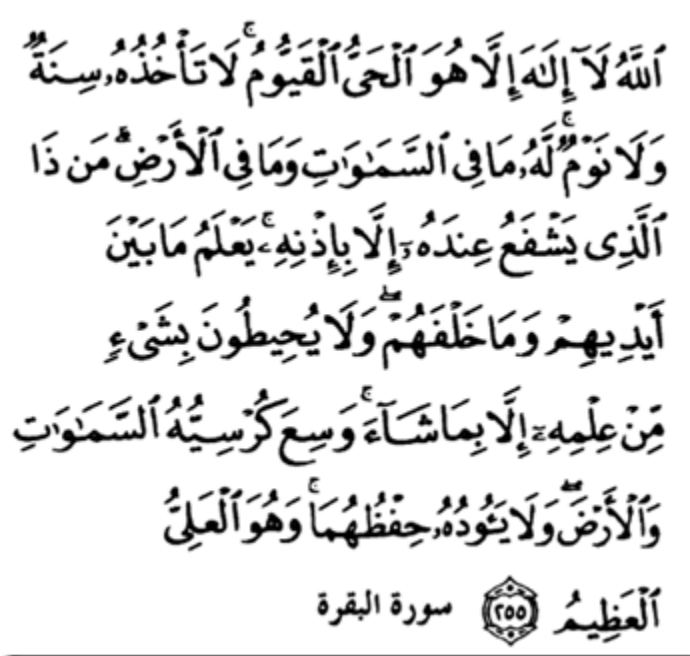 ٱللَّهُ لَآ إِلَـٰهَ إِلَّا هُوَ ٱلْحَىُّ ٱلْقَيُّومُ ۚ لَا تَأْخُذُهُۥ سِنَةٌ
وَلَا نَوْمٌ ۚ لَّهُۥ مَا فِى ٱلسَّمَـٰوَٰتِ وَمَا فِى ٱلْأَرْضِ ۗ مَن ذَا
ٱلَّذِى يَشْفَعُ عِندَهُۥٓ إِلَّا بِإِذْنِهِۦ ۚ يَعْلَمُ مَا بَيْنَ
أَيْدِيهِمْ وَمَا خَلْفَهُمْ ۖ وَلَا يُحِيطُونَ بِشَىْءٍ
مِّنْ عِلْمِهِۦٓ إِلَّا بِمَا شَآءَ ۚ وَسِعَ كُرْسِيُّهُ ٱلسَّمَـٰوَٰتِ
وَٱلْأَرْضَ ۖ وَلَا يَـُٔودُهُۥ حِفْظُهُمَا ۚ وَهُوَ ٱلْعَلِىُّ
ٱلْعَظِيمُ ٢٥٥ سورة البقرة